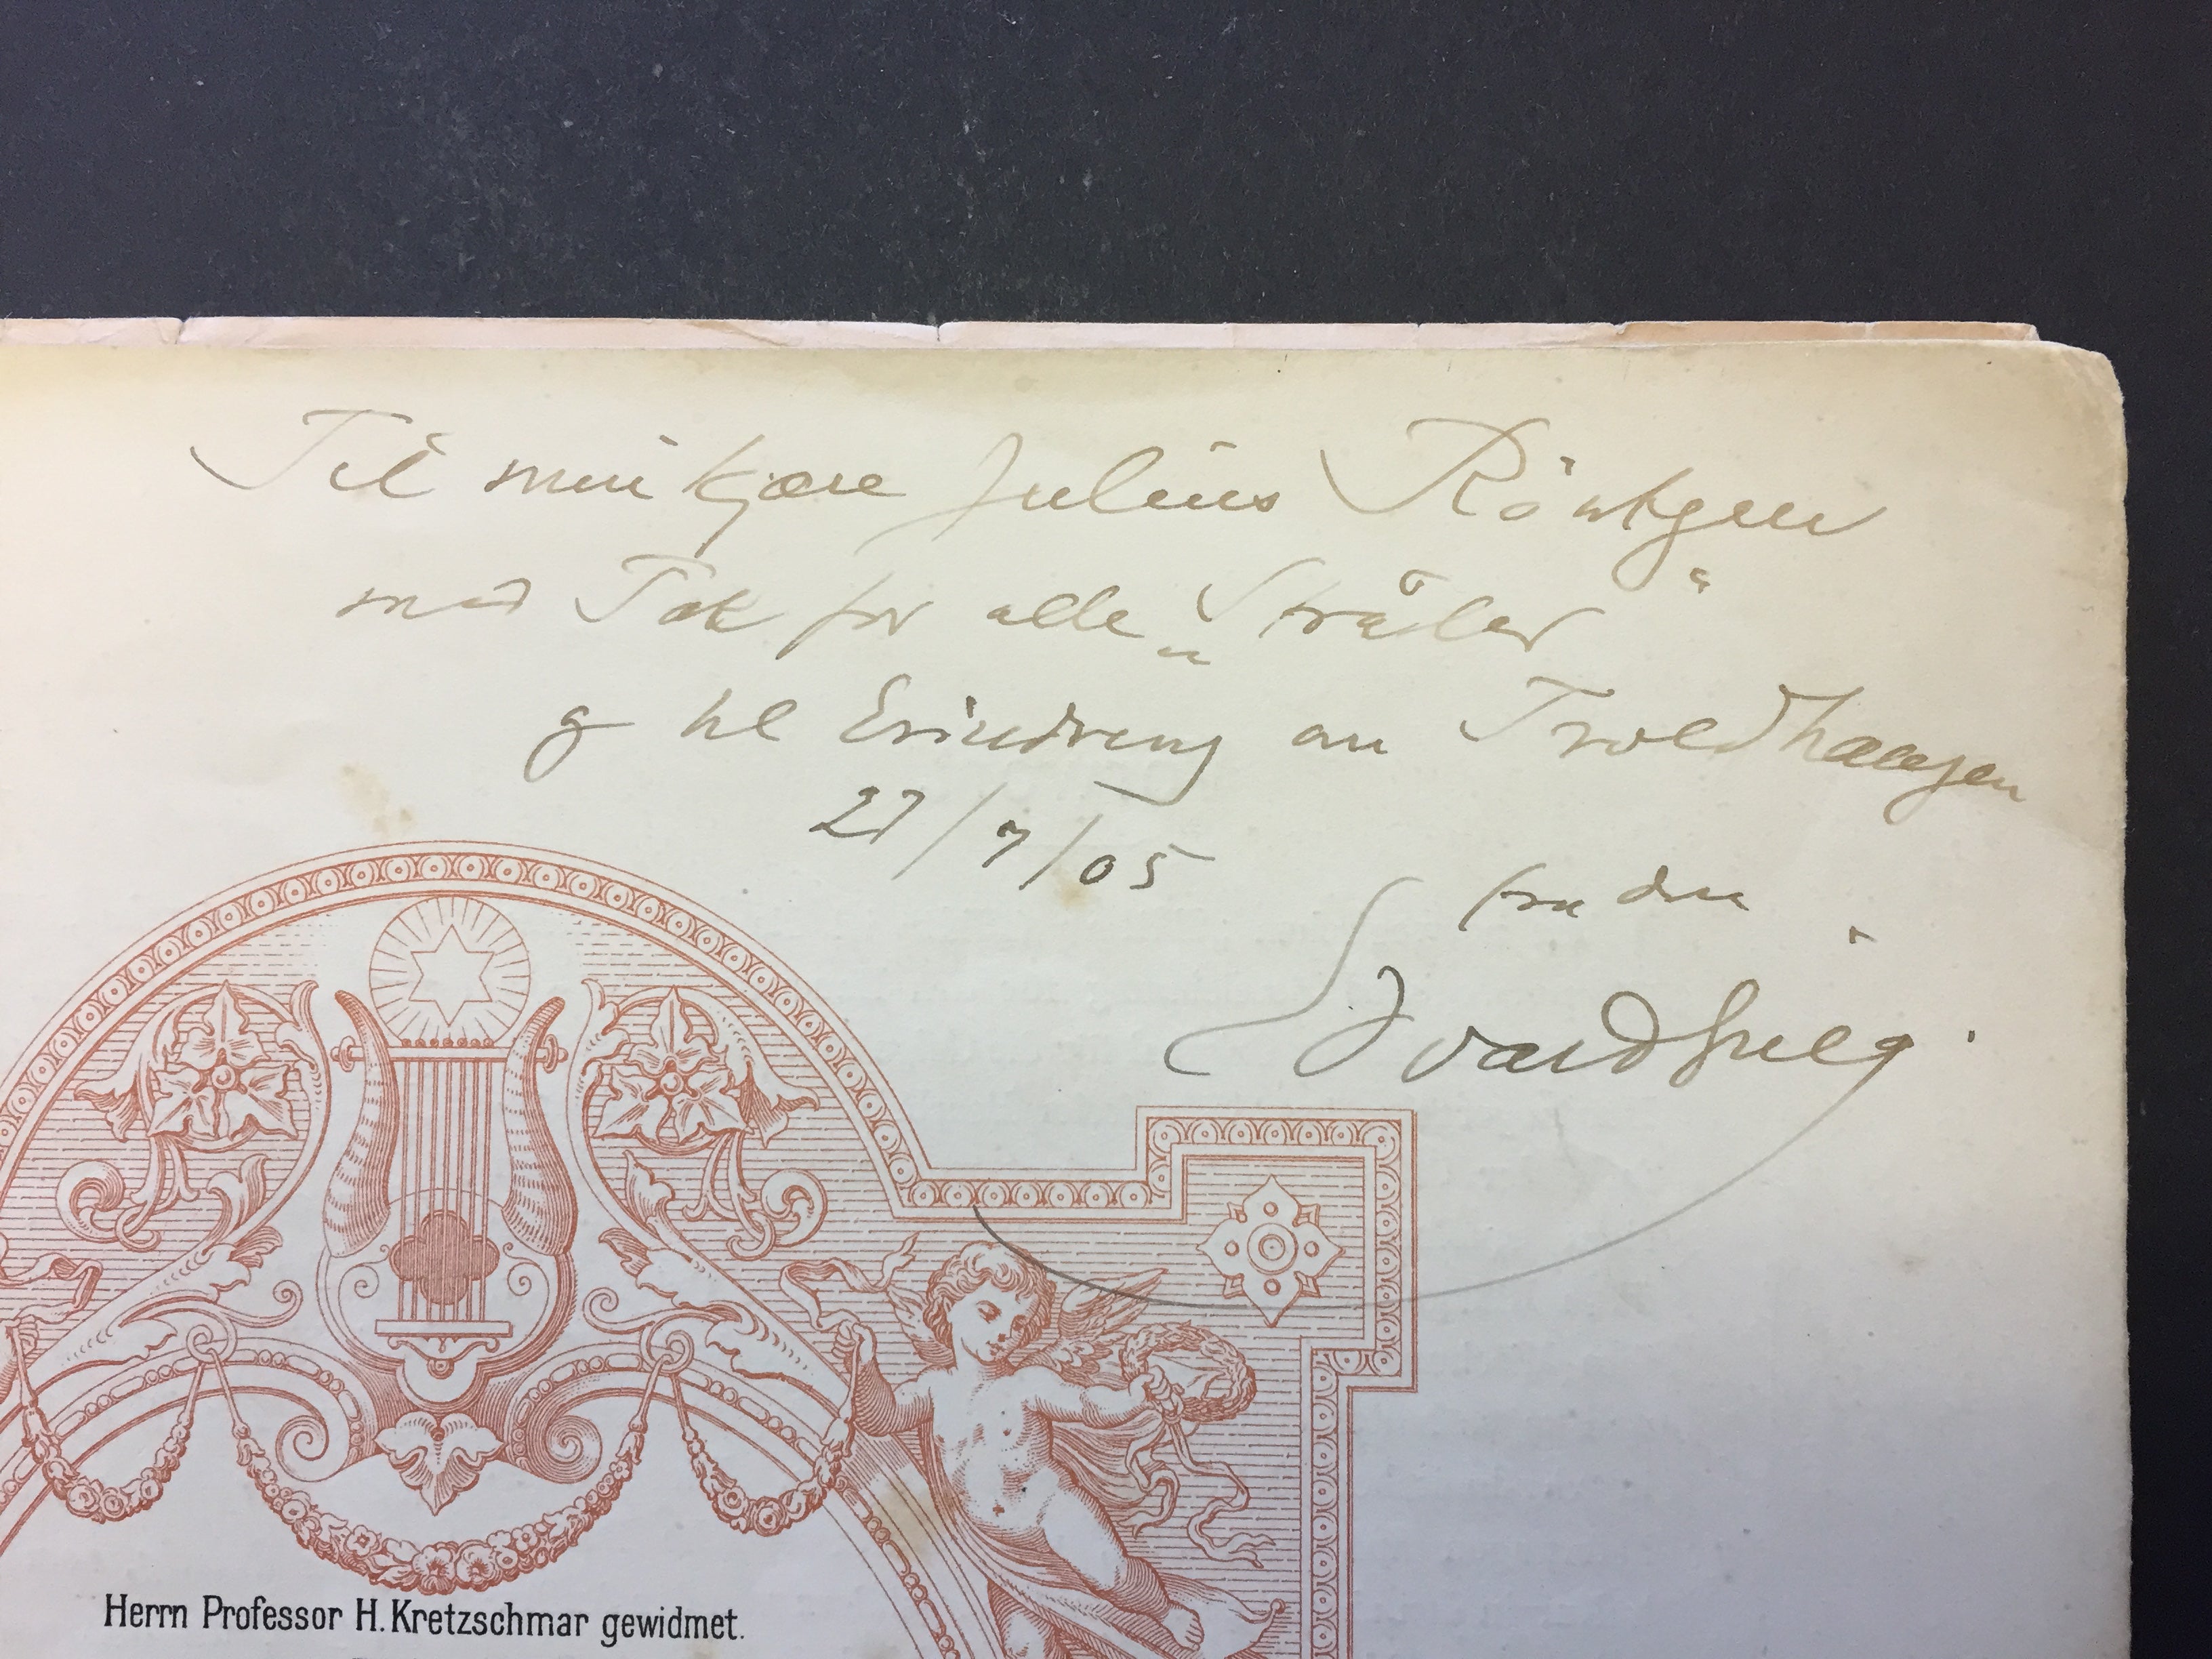 Til min kjære Julius Röntgen
med Tak for alle „Stråler“
og til Erindring om Troldhaugen
27/7/05
fra din
Edvard Grieg.
Herrn Professor H. Kretzschmar gewidmet.